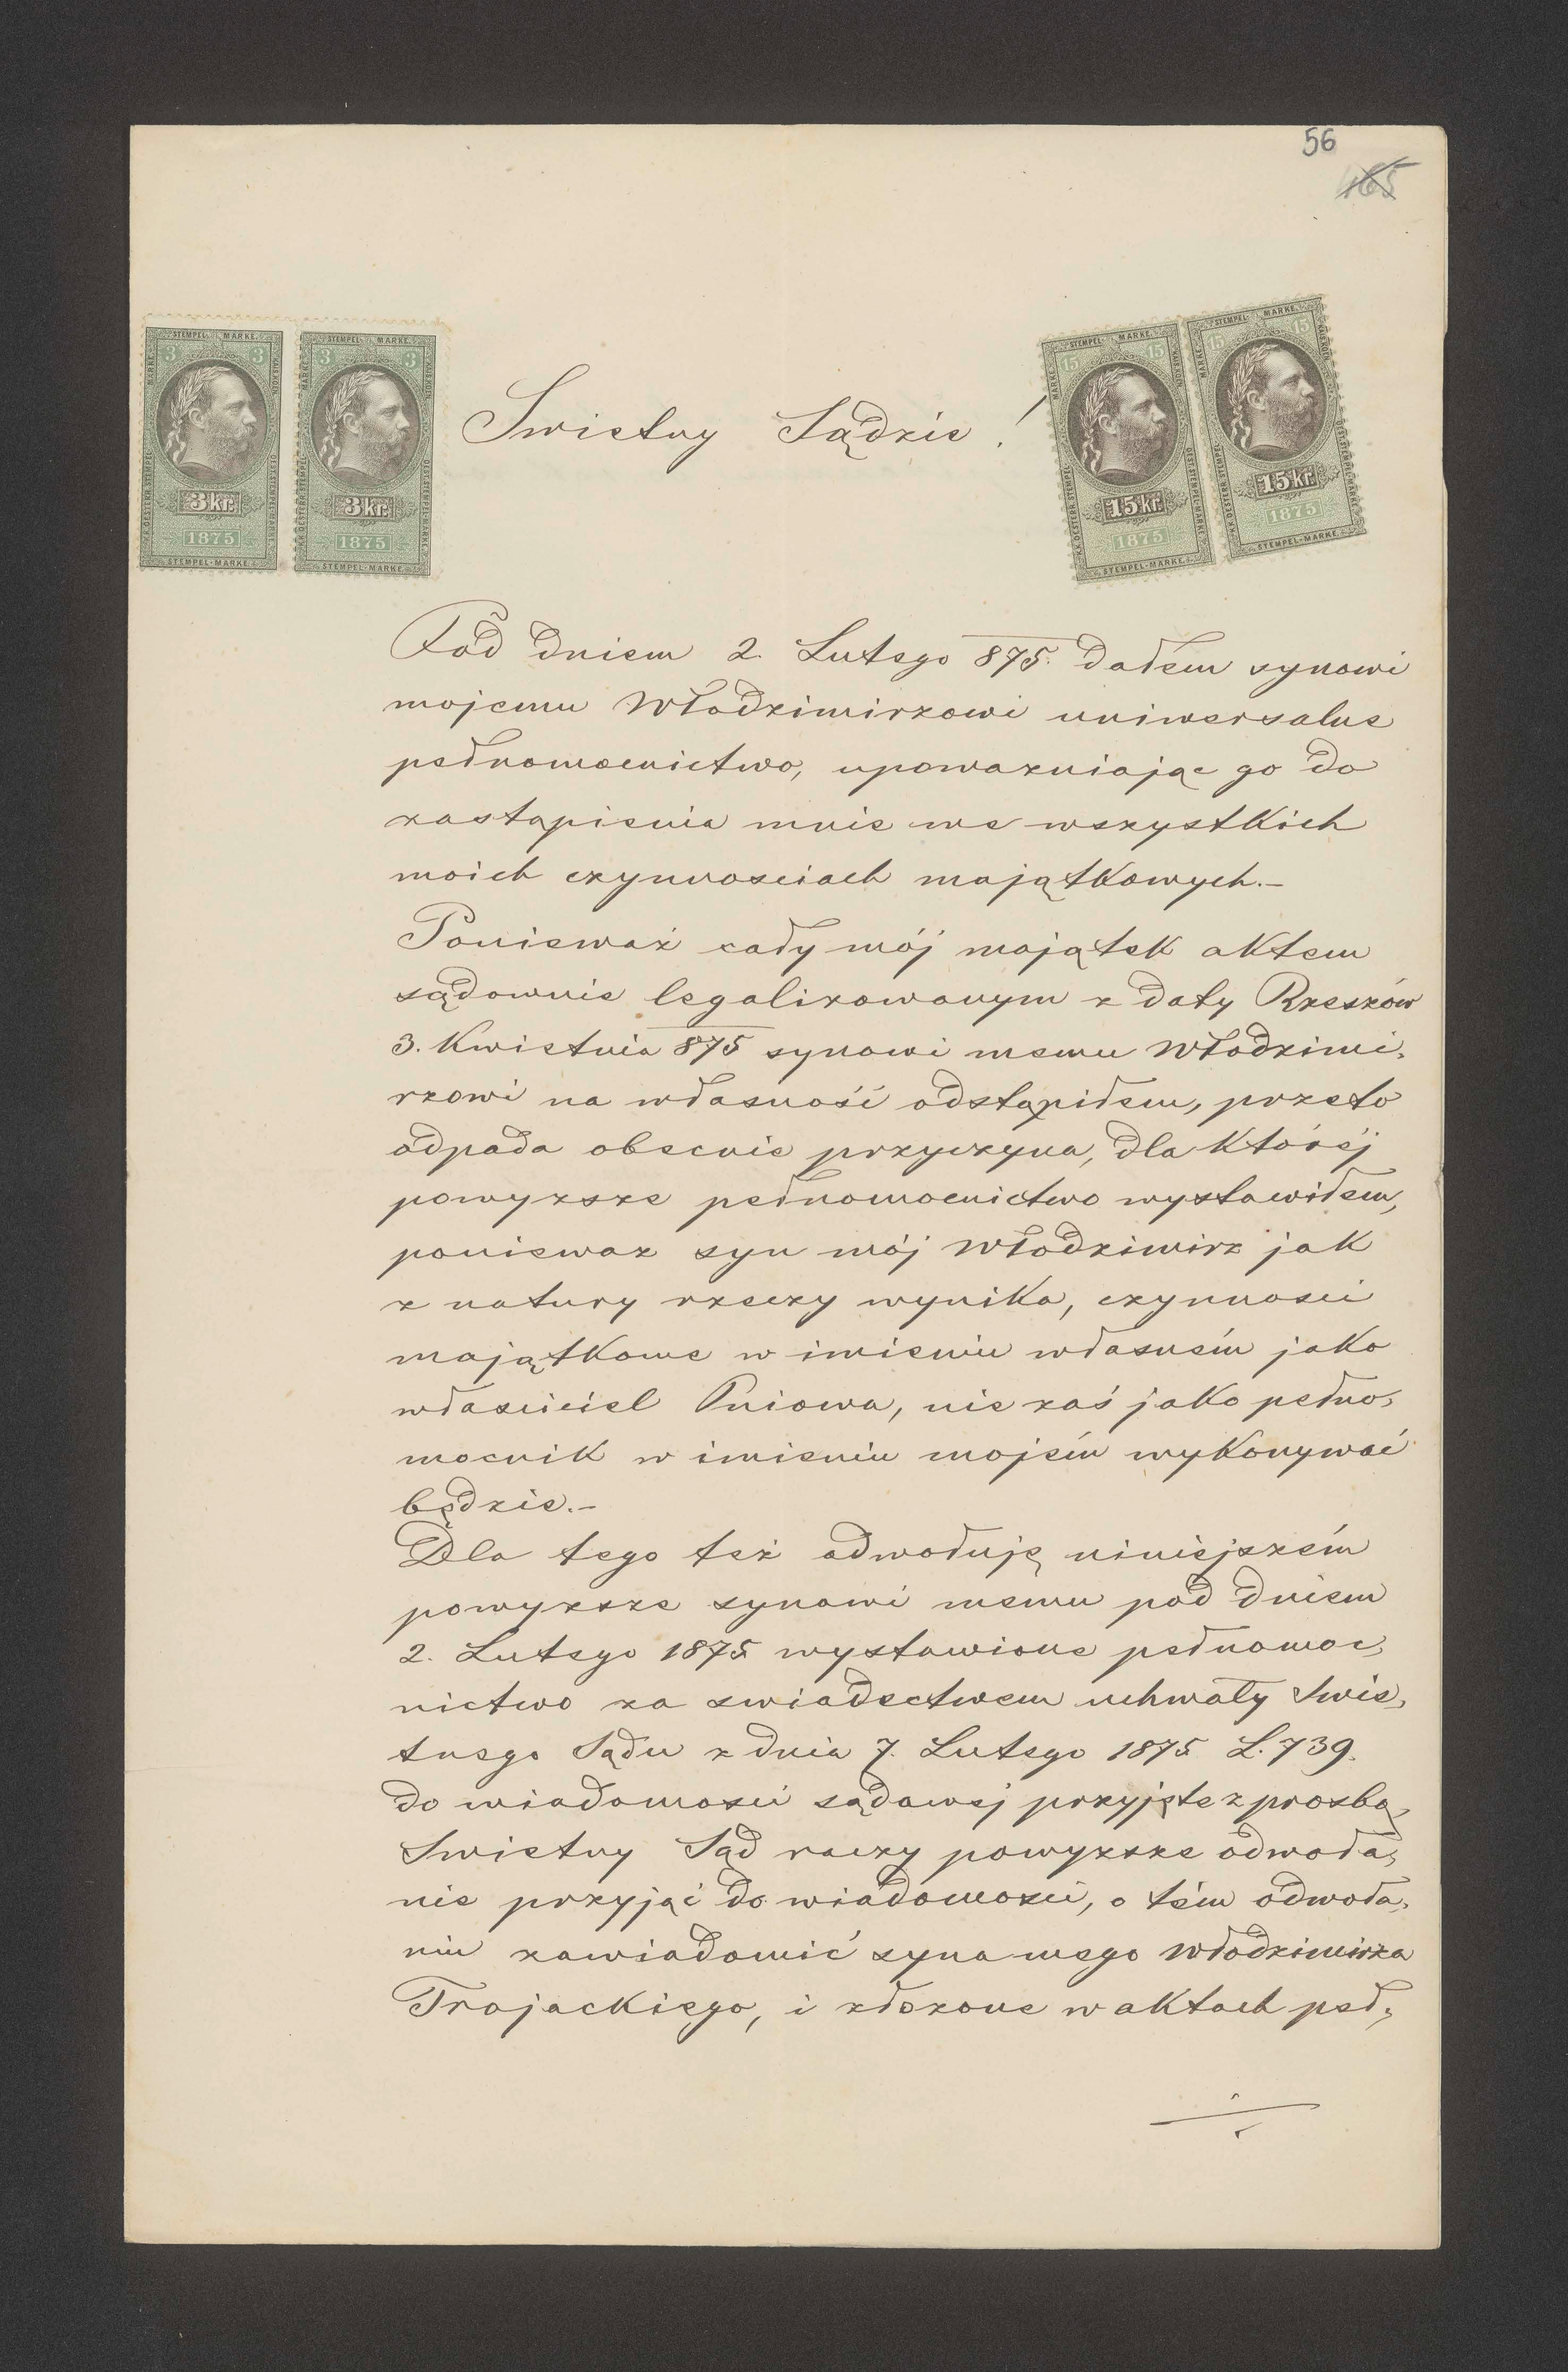 56
165
STEMPEL MARKE
3 3
3 kr.
1875
STEMPEL-MARKE
STEMPEL MARKE
3 3
3 kr.
1875
STEMPEL-MARKE
STEMPEL MARKE
15 15
15 kr.
1875
STEMPEL-MARKE
STEMPEL MARKE
15 15
15 kr.
1875
STEMPEL-MARKE
Swietny Sądzie!
Pod dniem 2. Lutego 875. dałem synowi
mojemu Włodzimirzowi uniwersalne
pełnomocnictwo, upowazniając go do
zastąpienia mnie we wszystkich
moich czynnosciach majątkowych.–
Ponieważ cały mój majątek aktem
sądownie legalizowanym z daty Rzeszów
3. Kwietnia 875 synowi memu Włodzimi,
rzowi na własność odstąpiłem, przeto
odpada obecnie przyczyna, dla któréj
powyzsze pełnomocnictwo wystawiłem,
poniewaz syn mój Włodzimirz jak
z natury rzeczy wynika, czynnosci
majątkowe w imieniu własném jako
własciciel Pniowa, nie zaś jako pełno,
mocnik w imieniu mojém wykonywać
będzie.–
Dla tego też odwołuję niniejszém
powyzsze synowi memu pod dniem
2. Lutego 1875 wystawione pełnomoc,
nictwo za swiadectwem uchwały Swie,
tnego Sądu z dnia 7. Lutego 1875 L. 739.
do wiadomosci sądowej przyjęte z prozbą,
Swietny Sąd raczy powyzsze odwoła,
nie przyjąć do wiadomosci, o tém odwoła,
niu zawiadomić syna mego Włodzimirza
Trojackiego, i złozone w aktach peł,